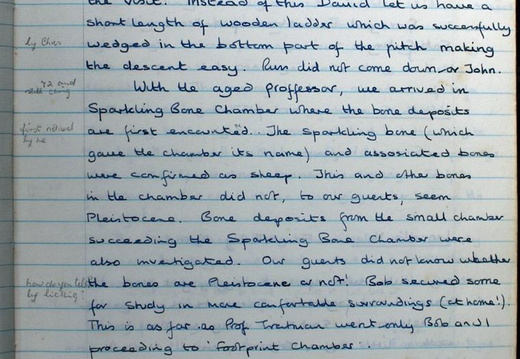 the visit. Instead of this David let us have a
short length of wooden ladder which was successfully
by Chas
wedged in the bottom part of the pitch making
the descent easy. Pam did not come down or John.
72 and
With the aged proffessor, we arrived in
Sparkling Bone Chamber where the bone deposits
first noticed
by me
are first encounted. The sparkling bone (which
gave the chamber its name) and assosiated bones
were confirmed as sheep. This and other bones
in the chamber did not, to our guests, seem
Pleistocene. Bone deposits from the small chamber
succeeding the Sparkling Bone Chamber were
also investigated. Our guests did not know wheather
how do you tell
by licking!
the bones are Pleistocene or not! Bob secured some
for study in more confortable surroundings (at home!).
This is as far as Prof Tratman went only Bob and I
proceeding to 'Footprint Chamber'.